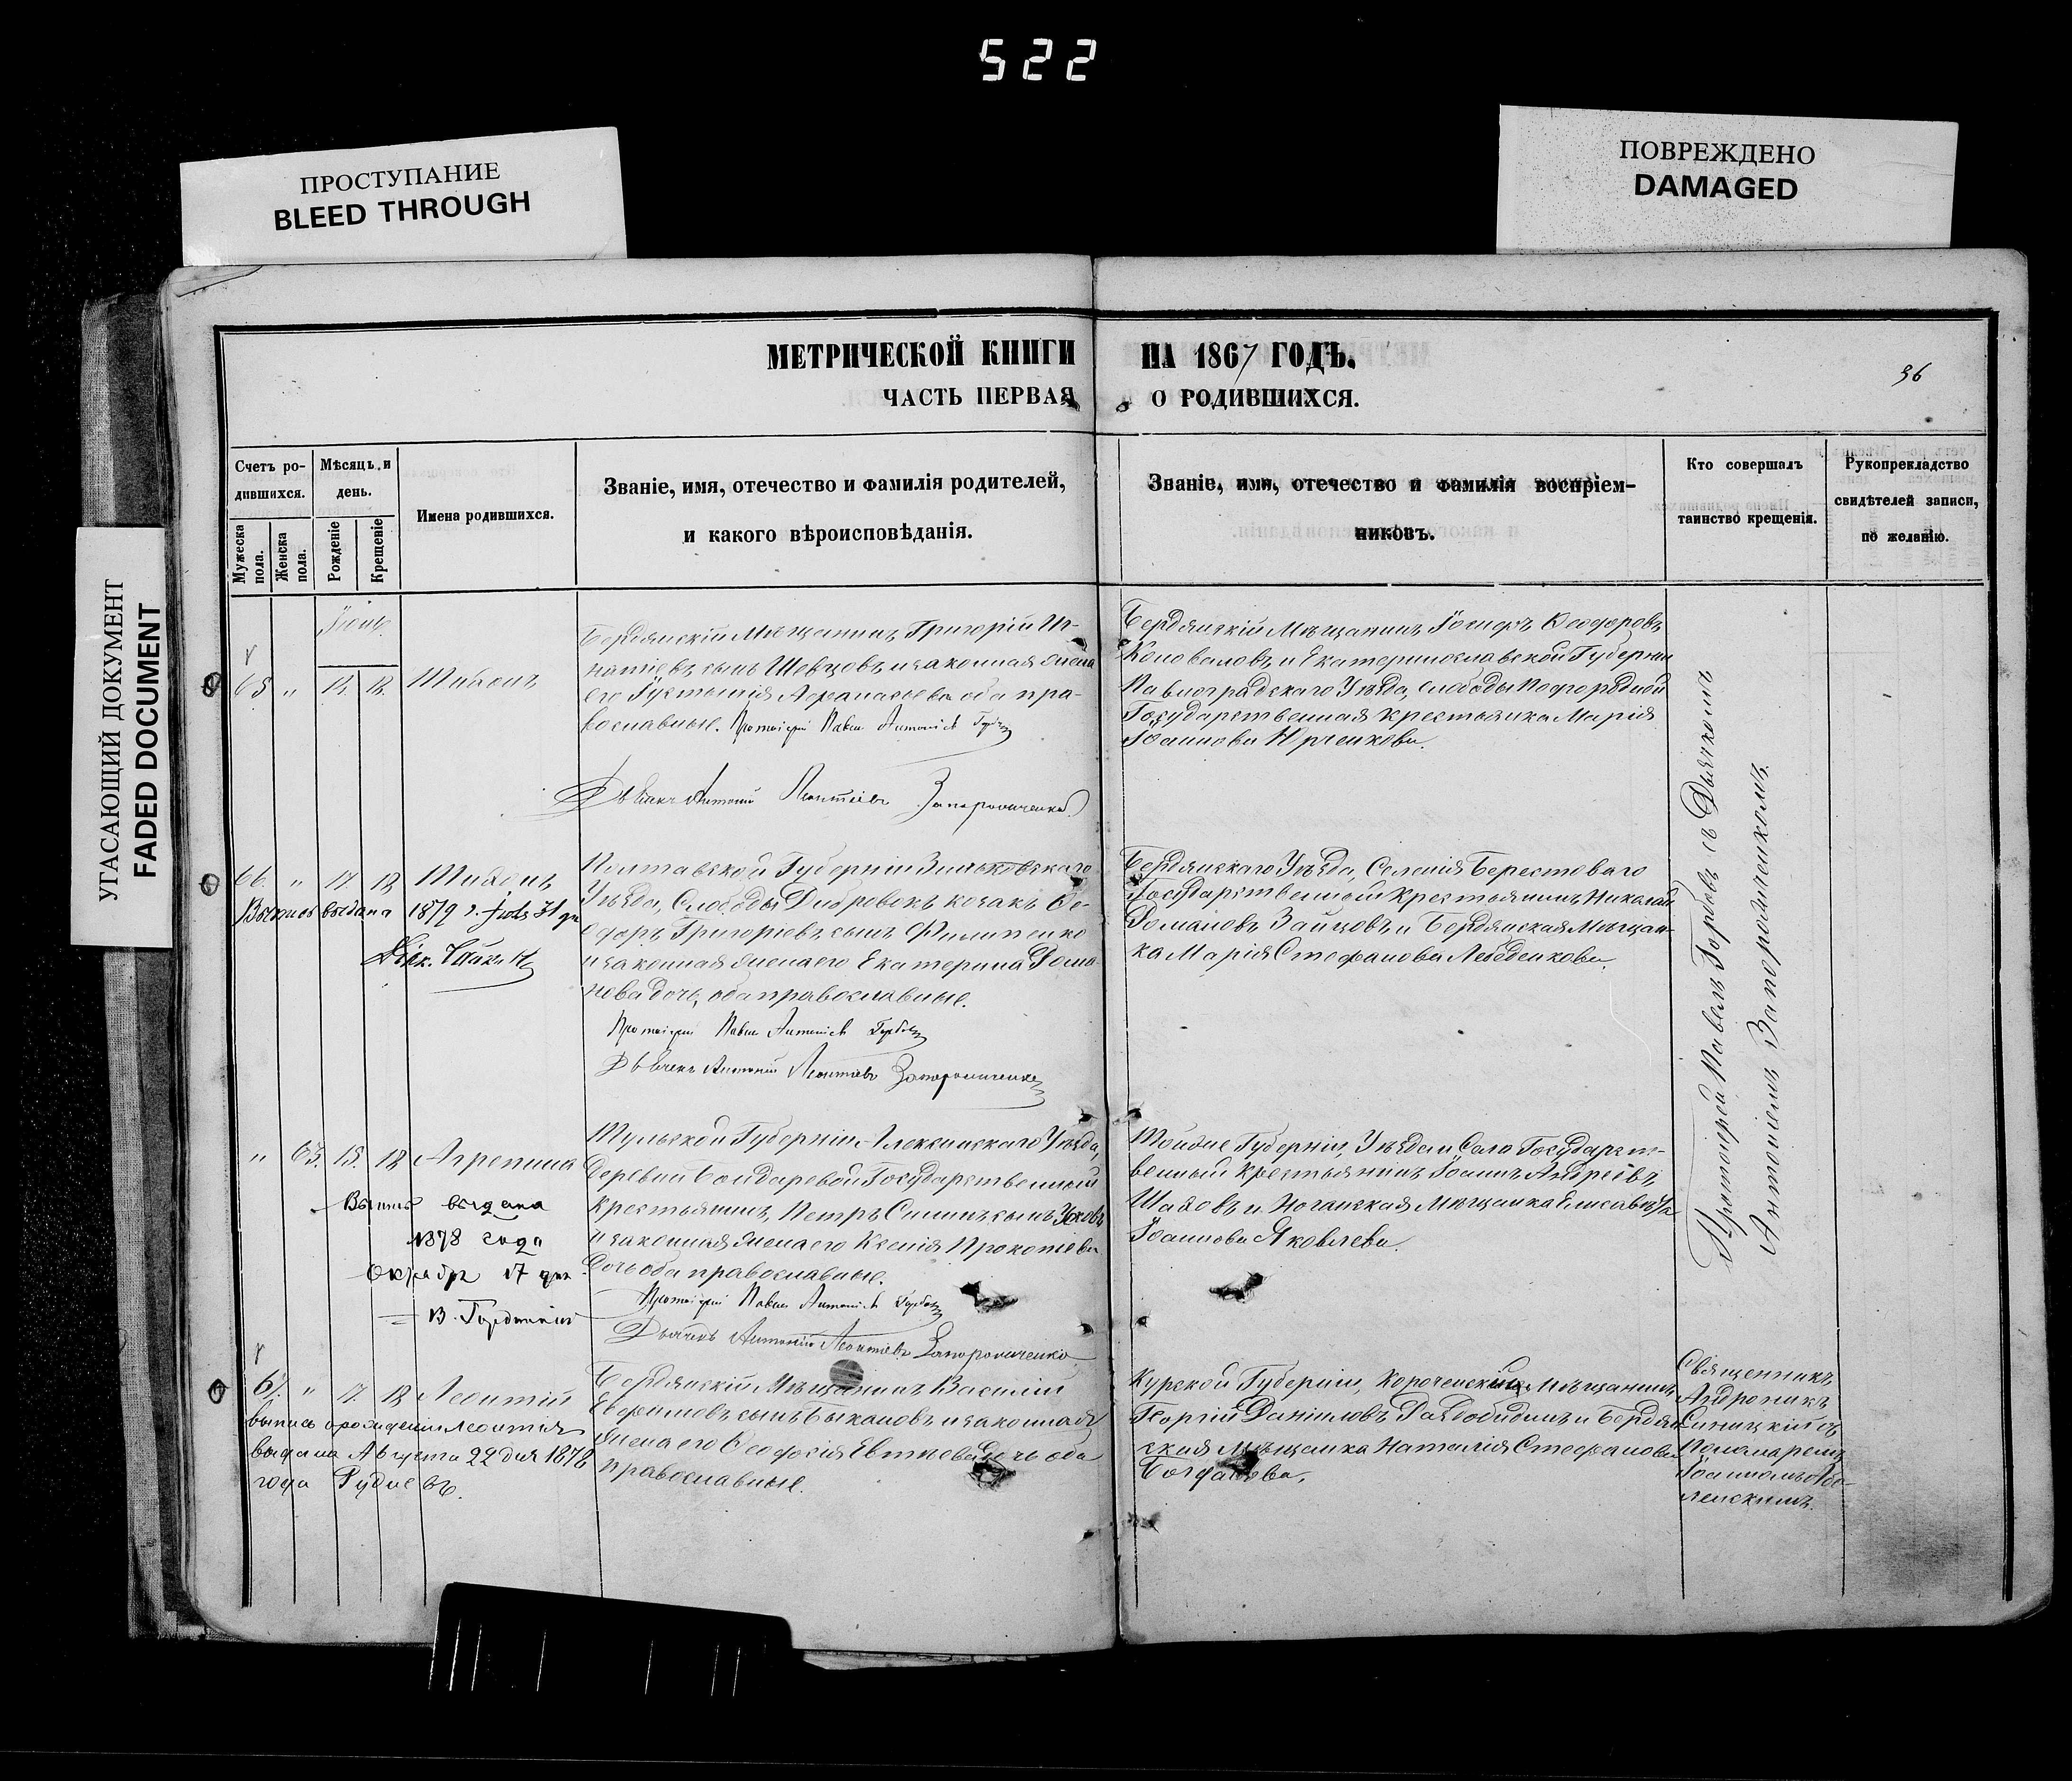 522
ПРОСТУПАНИЕ
BLEED THROUGH
ПОВРЕЖДЕНО
DAMAGED
УГАСАЮЩИЙ ДОКУМЕНТ
FADED DOCUMENT
МЕТРИЧЕСКОЙ КНИГИ НА 1867 ГОДЪ.
36
ЧАСТЬ ПЕРВАЯ О РОДИВШИХСЯ.
Счетъ ро-
дившихся.
Мужеска
пола.
Женска
пола.
Мѣсяцъ и
день.
Рожденіе
Крещеніе
Имена родившихся.
Званіе, имя, отечество и фамилія родителей,
и какого вѣроисповѣданія.
Званіе, имя, отечество и фамилія воспріем-
никовъ.
Кто совершалъ
таинство крещенія.
Рукоприкладство
свидѣтелей записи,
по желанію.
65 "
Тихонъ
Бердянскій Мѣщанинъ Григорій Иг-
натіевъ сынъ Шевцовъ и законная жена
его Аѳанасьева оба пра-
вославные. Протоіерей Павелъ Антоніевъ
Дьячекъ Антоній Леонтіевъ Запорожченко
Бердянскій Мѣщанинъ Ѳеодоровъ
Коноваловъ и Екатеринославской Губерніи
Павлоградскаго Уѣзда, слободы Подгородной
Государственная крестьянка Марія
Іоаннова Юрченкова.
66. " 17. 18 Тихонъ
Выпись выдана 1879 г. 31 дня
Полтавской Губерніи Зиньковскаго
Уѣзда, Слободы Дибровокъ козакъ Ѳе-
одоръ Григоріевъ сынъ Филипенко
и законная жена его Екатерина Рома-
нова дочь, оба православные.
Протоіерей Павелъ Антоніевъ Горбовъ
Дьячекъ Антоній Леонтіевъ Запорожченко
Бердянскаго Уѣзда, Селенія Берестоваго
Государственный крестьянинъ Николай
Романовъ Зайцовъ и Бердянская Мѣщан-
ка Марія Стефанова Лебеденкова.
" 63. 15. 18 Агрепина
Выпись выдана
1878 года
Октября 17 дня
Тульской Губерніи Алексинскаго Уѣзда,
деревни Бондаревой Государственный
крестьянинъ, Петръ сынъ
и законная жена его Ксенія Прокопіева
дочь оба православные.
Протоіерей Павелъ Антоніевъ Горбовъ
Дьячекъ Антоній Леонтіевъ Запорожченко
Тойже Губерніи, Уѣзда и Села Государст-
венный крестьянинъ Іоаннъ Андреевъ
и Ногайская Мѣщанка Елисавета
Іоаннова Яковлева.
Протоіерей Павелъ Горбовъ съ Дьячкомъ
Антоніемъ Запорожченкомъ.
67. " 17. 18 Леонтій
Выпись о рожденіи Леонтія
выдана Августа 22 дня 1878
года Рудневъ.
Бердянскій Мѣщанинъ Василій
сынъ Быкановъ и законная
жена его Ѳеодосія дочь оба
православные.
Курской Губерніи, Корочанскій Мѣщанинъ
Георгій Даніиловъ и Бердян-
ская Мѣщанка Наталія Стефанова
Богданова.
Священникъ
Андроникъ
Синицкій съ
Пономаремъ
Іоанномъ Обо-
ленскимъ.